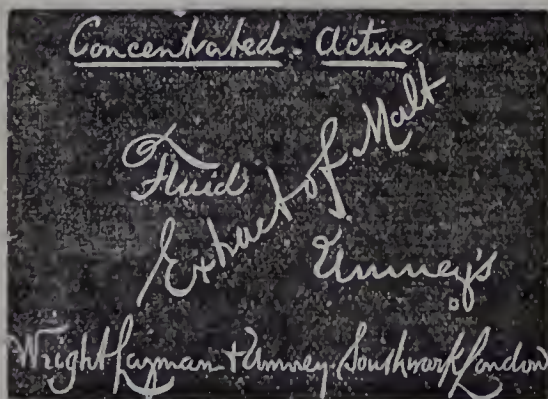 Concentrated. Active
Fluid
Extract of Malt
Umney's
Wright Layman + Umney. Southwark London